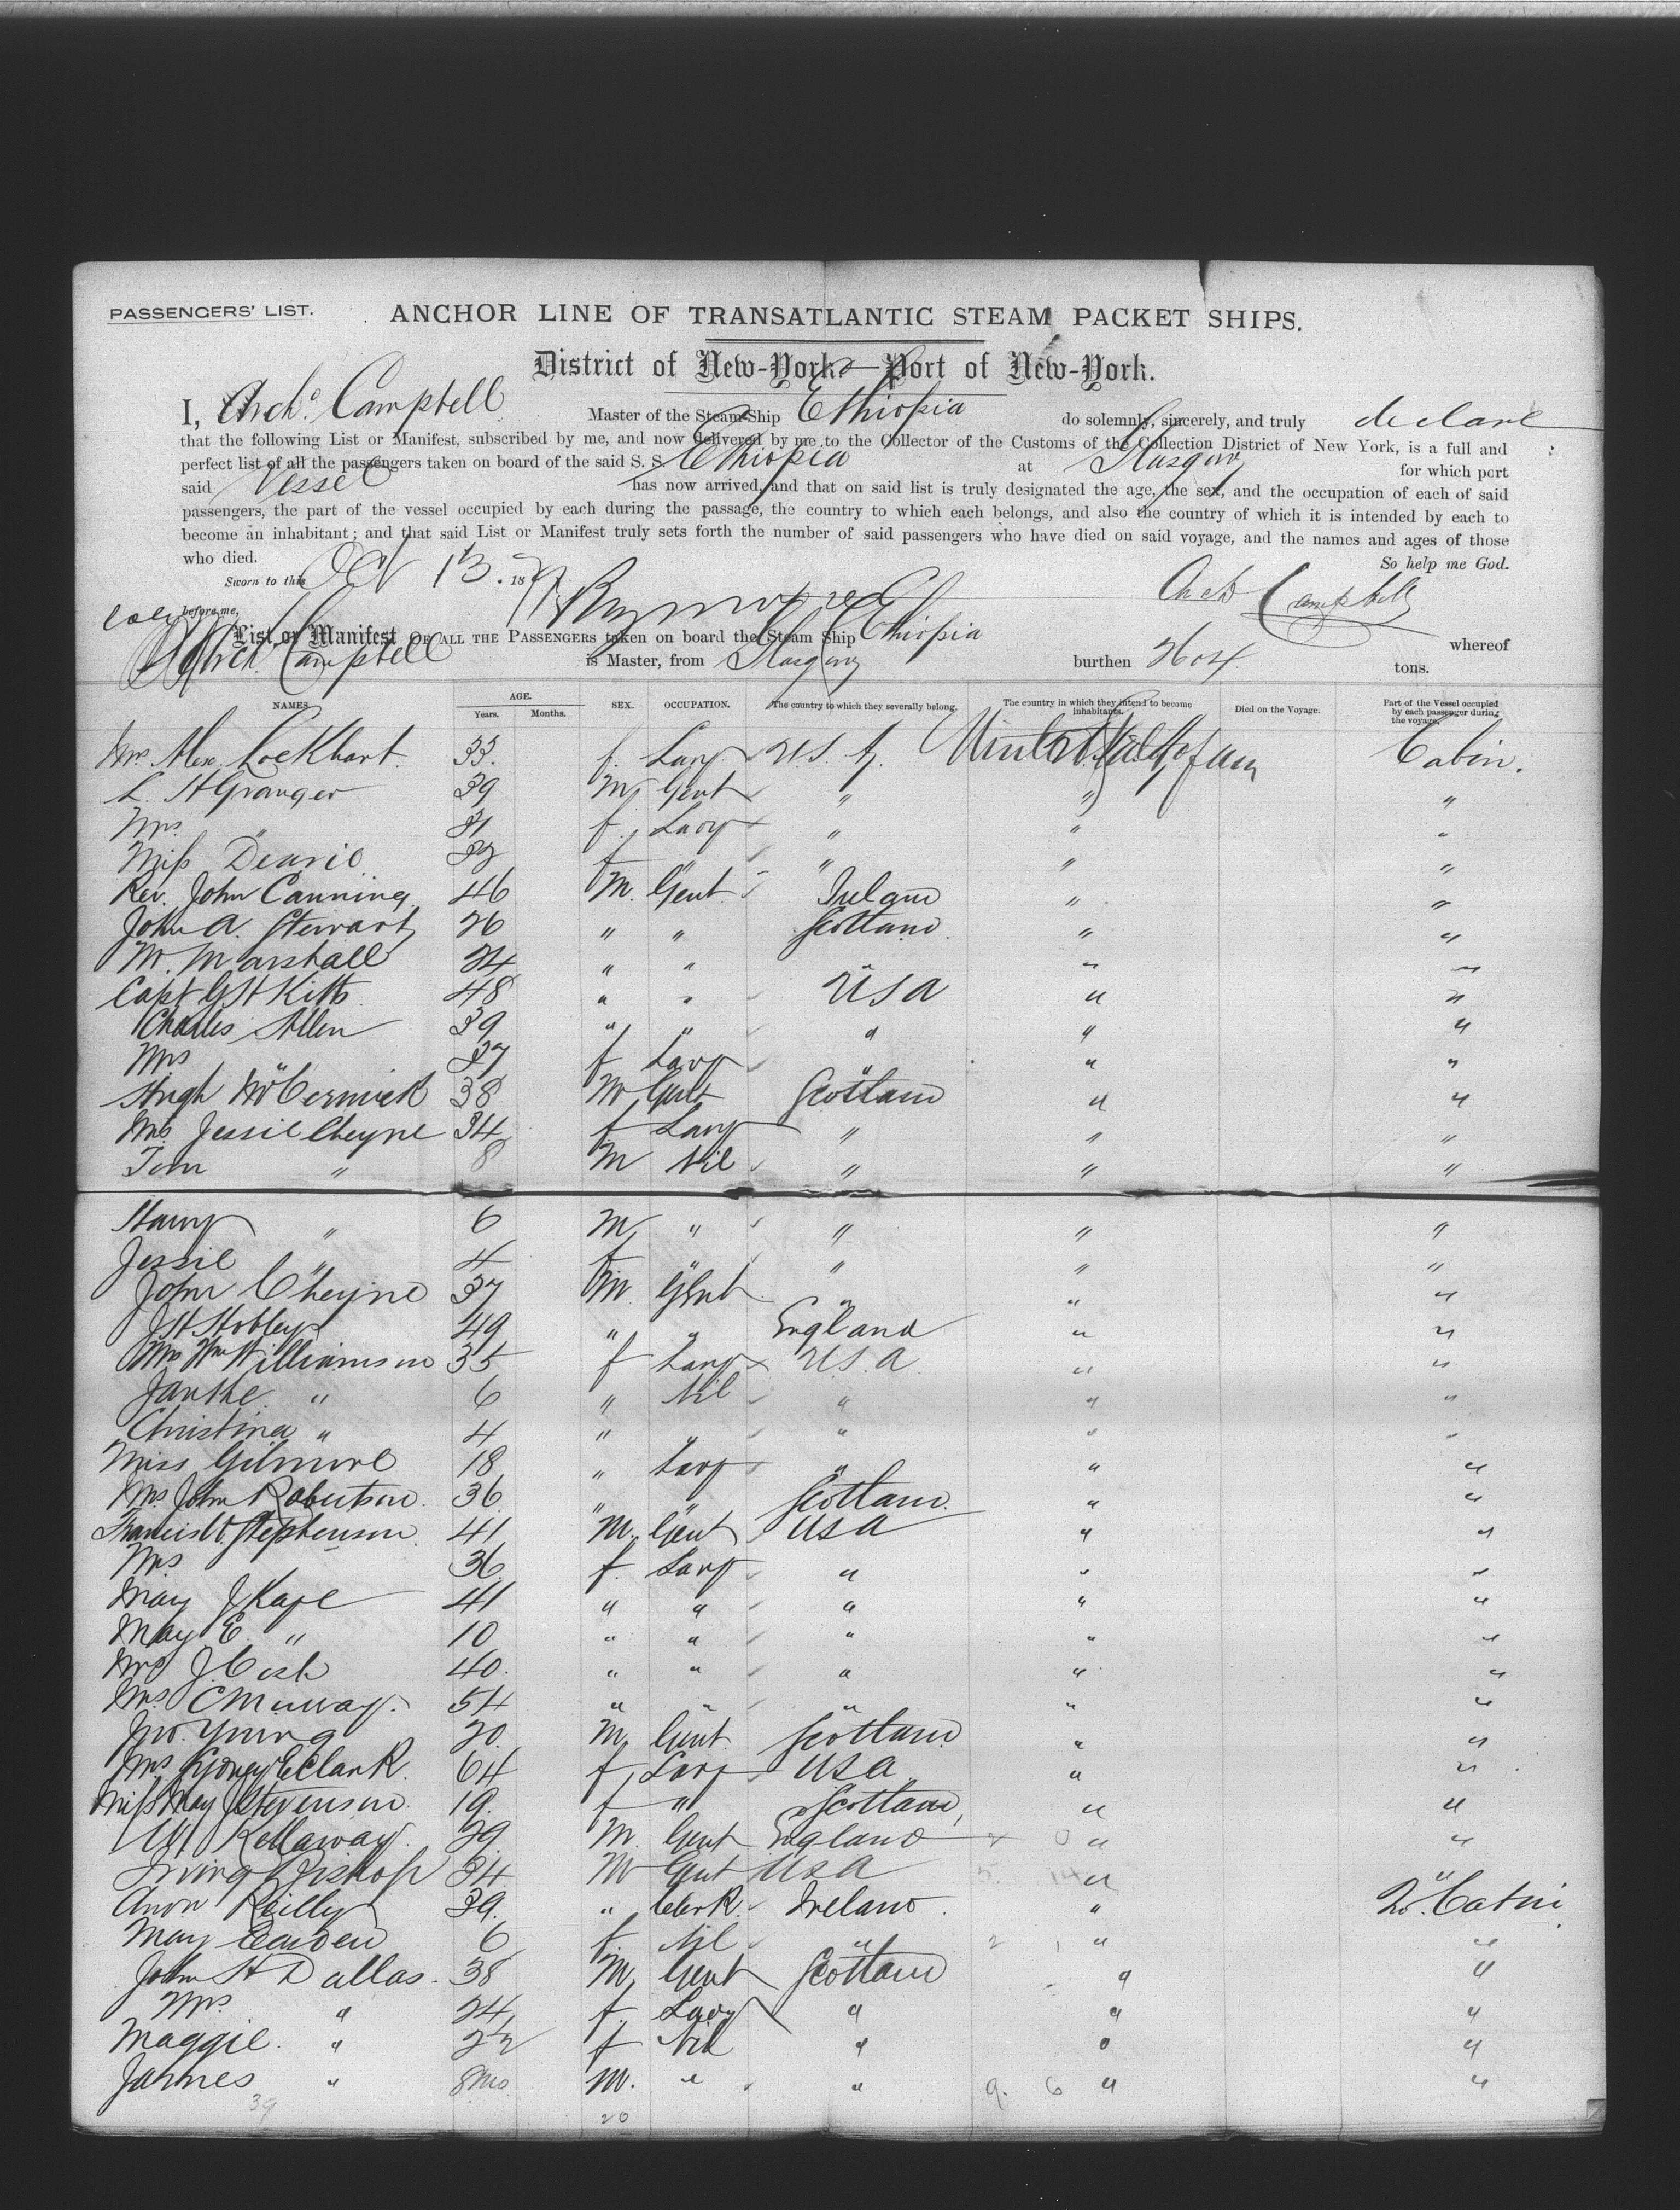 PASSENGERS' LIST.
ANCHOR LINE OF TRANSATLANTIC STEAM PACKET SHIPS.
District of New-York—Port of New-York.
I, Archd. Campbell Master of the Steam Ship Ethiopia do solemnly, sincerely, and truly declare
that the following List or Manifest, subscribed by me, and now delivered by me to the Collector of the Customs of the Collection District of New York, is a full and
perfect list of all the passengers taken on board of the said S. S. Ethiopia at Glasgow for which port
said Vessel has now arrived, and that on said list is truly designated the age, the sex, and the occupation of each of said
passengers, the part of the vessel occupied by each during the passage, the country to which each belongs, and also the country of which it is intended by each to
become an inhabitant; and that said List or Manifest truly sets forth the number of said passengers who have died on said voyage, and the names and ages of those
who died. So help me God.
Sworn to this Oct 13. 18
before me, Archd Campbell
List or Manifest OF ALL THE PASSENGERS taken on board the Steam Ship Ethiopia whereof
Archd. Campbell is Master, from Glasgow burthen 2604 tons.
NAMES. AGE. Years. Months. SEX. OCCUPATION. The country to which they severally belong. The country in which they intend to become inhabitants. Died on the Voyage. Part of the Vessel occupied by each passenger during the voyage.
Mrs Alex. Lockhart. 33. f. Lady U.S. A. United States of Am Cabin.
L. H Granger 39 M Gent " " "
Mrs. " 31 f. Lady " " "
Miss f " " " "
Rev. John Canning 46 M. Gent. Ireland " "
John A. Stewart 26 " " Scotland " "
W. Marshall 24 " " " " "
Capt G H Kitts 48 " " USA " "
Charles Allen 39 " " " " "
Mrs " 37 f Lady " " "
Hugh McCormick 38 M Gent Scotland " "
Mrs Jessie Cheyne 34 f Lady " " "
Tom " 8 M Nil " " "
Harry " 6 M " " " "
Jessie " 4 f " " " "
John Cheyne 37 M Gent " " "
J H 49 " " England " "
Mrs Wm Williamson 35 f Lady USA " "
" 6 " Nil " " "
Christina " 4 " " " " "
Miss Gilmore 18 " Lady " " "
Mrs John Robertson. 36 " " Scotland " "
Francis Stephenson 41 M. Gent USA " "
Mrs 36 f. Lady " " "
Mary J Kape 41 " " " " "
May E " 10 " " " " "
Mrs J Cish 40. " " " " "
Mrs. C Murray. 54 " " " " "
Jno. Young 20 M. Gent Scotland " "
Mrs Sydney E Clark. 64 f Lady USA " "
Miss May J Stevenson 19. f " Scotland " "
Kellaway 29 M Gent England " "
Irving Bishop 34 M Gent USA " "
Reilly 39. " Clerk Ireland. " 2d. Cabin
May 6 f. Nil " " "
John H Dallas. 38 M, Gent Scotland " "
Mrs. " 24 f. Lady " " "
Maggie. " 2½ f Nil " " "
James " 8mo M. " " " "
39 20 9. 6